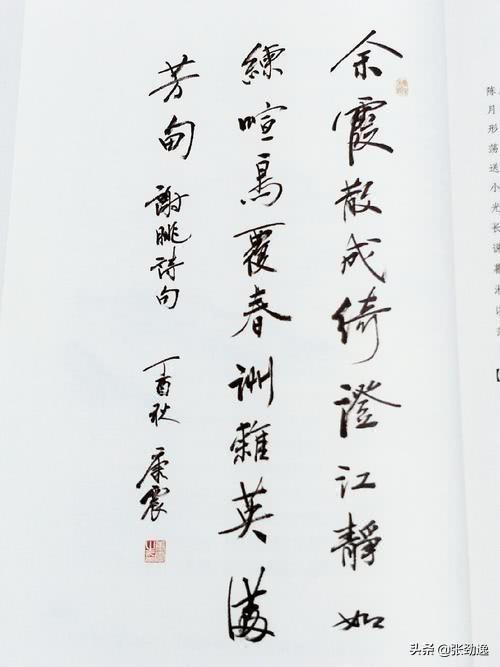 余霞散成绮澄江靜如
練喧鳥覆春洲雜英满
芳甸 謝朓詩句 丁酉秋 康震
陈
月
形
荡
送
小
光
长
头条 @张劲逸